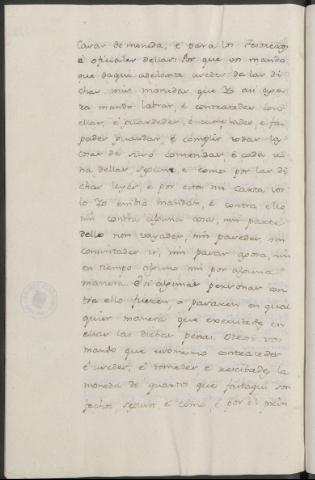 Casas de moneda, e para los Tesoreros
e oficiales dellas: Por que vos mando
que daqui adelante usedes de las di
chas mis monedas que Yo asi aqui
mando labrar, e contratedes con
ellas, e guardedes, e cumplades, e fa
gades guardar, e complir todas las
cosas de suso contenidas, e cada u
na dellas, segunt, e como por las di
chas leyes, e por esta mi Carta vos
lo Yo embio mandar, e contra ello
nin contra alguna cosa, nin parte
dello non vayades, nin pasedes, nin
consintades ir, nin pasar agora, nin
en tiempo alguno nin por alguna
manera. E si algunas personas con
tra ello fueren, o pasaren en qual
quier manera que executedes en
ellas las dichas penas. Otrosi vos
mando que usedes contratedes
e usedes, e tomedes e recibades la
moneda de quartos que fastaqui son
fechos segunt, e como, e por el prein